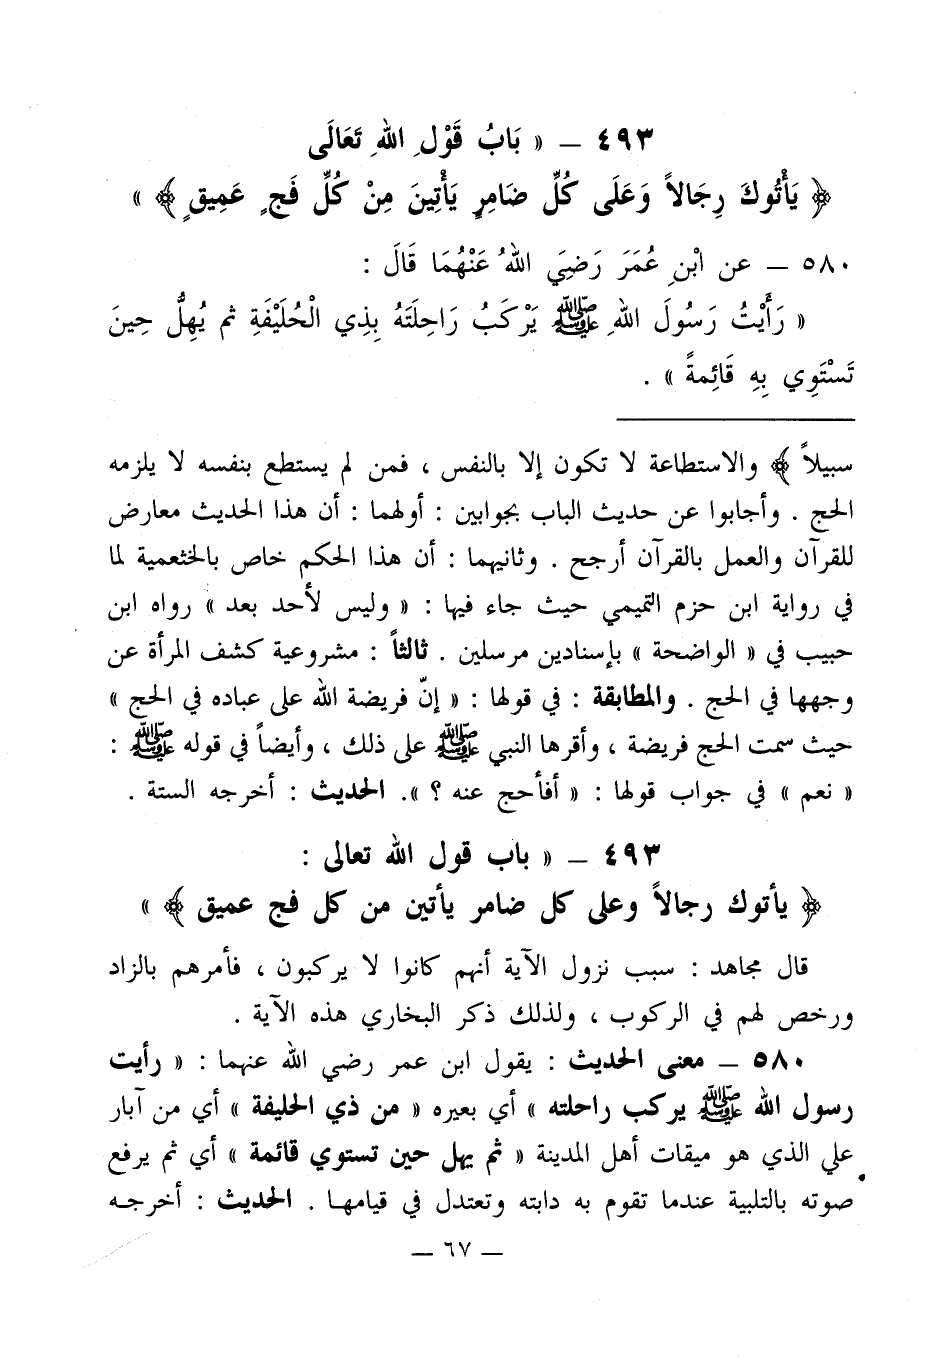 ٤٩٣ – « بَابُ قَوْلِ اللهِ تَعَالَى
﴿ يَأْتُوكَ رِجَالاً وَعَلَى كُلِّ ضَامِرٍ يَأْتِينَ مِنْ كُلِّ فَجٍ عَمِيقٍ ﴾ »
٥٨٠ – عن ابْنِ عُمَرَ رَضِيَ اللهُ عَنْهُمَا قَالَ :
« رَأَيْتُ رَسُولَ اللهِ ﷺ يَرْكَبُ رَاحِلَتَهُ بِذِي الْحُلَيْفَةِ ثم يُهِلُّ حِينَ
تَسْتَوِي بِهِ قَائِمةً » .
سبيلاً ﴾ والاستطاعة لا تكون إلا بالنفس ، فمن لم يستطع بنفسه لا يلزمه
الحج . وأجابوا عن حديث الباب بجوابين : أولهما : أن هذا الحديث معارض
للقرآن والعمل بالقرآن أرجح . وثانيهما : أن هذا الحكم خاص بالخثعمية لما
في رواية ابن حزم التميمي حيث جاء فيها : « وليس لأحد بعد » رواه ابن
حبيب في « الواضحة » بإسنادين مرسلين . ثالثاً : مشروعية كشف المرأة عن
وجهها في الحج . والمطابقة : في قولها : « إنّ فريضة الله على عباده في الحج »
حيث سمت الحج فريضة ، وأقرها النبي ﷺ على ذلك ، وأيضاً في قوله ﷺ :
« نعم » في جواب قولها : « أفأحج عنه ؟ ». الحديث : أخرجه الستة .
٤٩٣ – « باب قول الله تعالى :
﴿ يأتوك رجالاً وعلى كل ضامر يأتين من كل فج عميق ﴾ »
قال مجاهد : سبب نزول الآية أنهم كانوا لا يركبون ، فأمرهم بالزاد
ورخص لهم في الركوب ، ولذلك ذكر البخاري هذه الآية .
٥٨٠ – معنى الحديث : يقول ابن عمر رضي الله عنهما : « رأيت
رسول الله ﷺ يركب راحلته » أي بعيره « من ذي الحليفة » أي من آبار
علي الذي هو ميقات أهل المدينة « ثم يهل حين تستوي قائمة » أي ثم يرفع
صوته بالتلبية عندما تقوم به دابته وتعتدل في قيامها . الحديث : أخرجه
– ٦٧ –